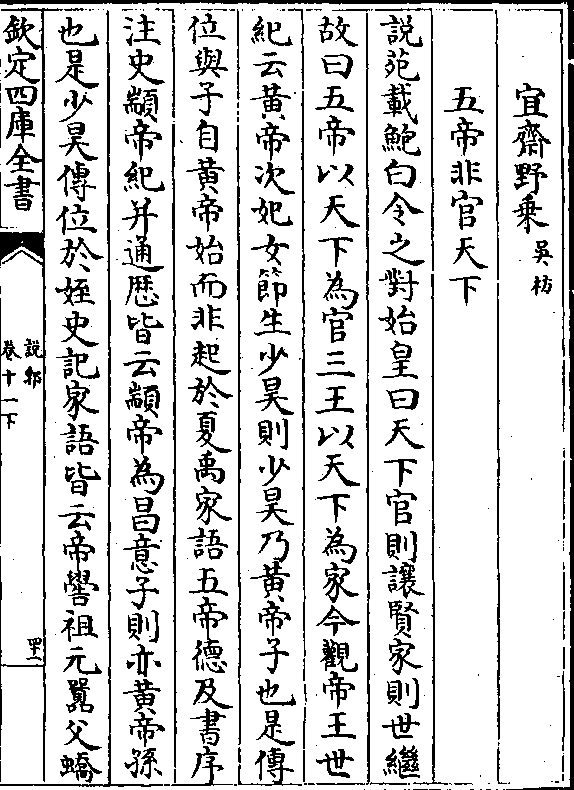 宜齋野乗 吳枋
五帝非官天下
說苑載鮑白令之對始皇曰天下官則讓賢家則世繼
故曰五帝以天下為官三王以天下為家今觀帝王世
紀云黃帝次妃女節生少昊則少昊乃黃帝子也是傳
位與子自黃帝始而非起於夏禹家語五帝德及書序
注史顓帝紀并通歴皆云顓帝為昌意子則亦黃帝孫
也是少昊傳位於姪史記家語皆云帝嚳祖元囂父蟜
欽定四庫全書
說郛
卷十一下
四十一